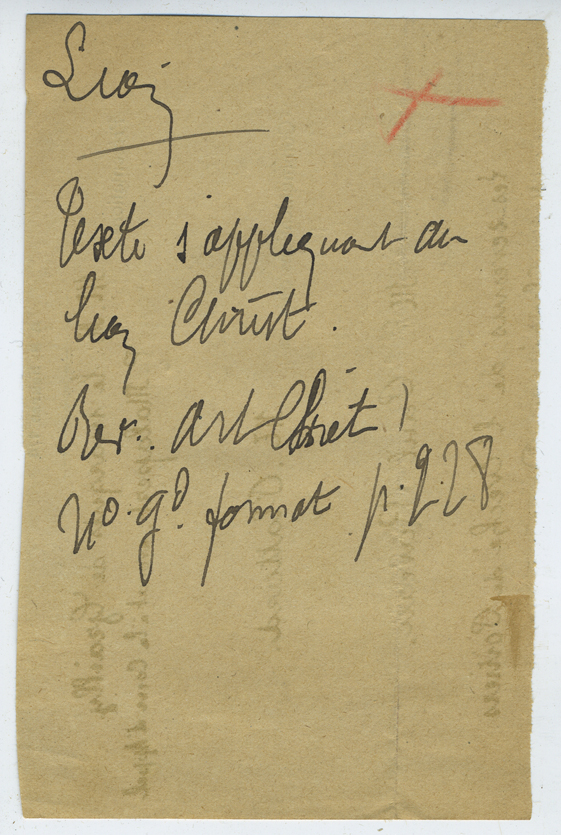 Lion
Texte s'appliquant au
lion Christ.
Rev. Art Chrét!
no. gd. format p. 228